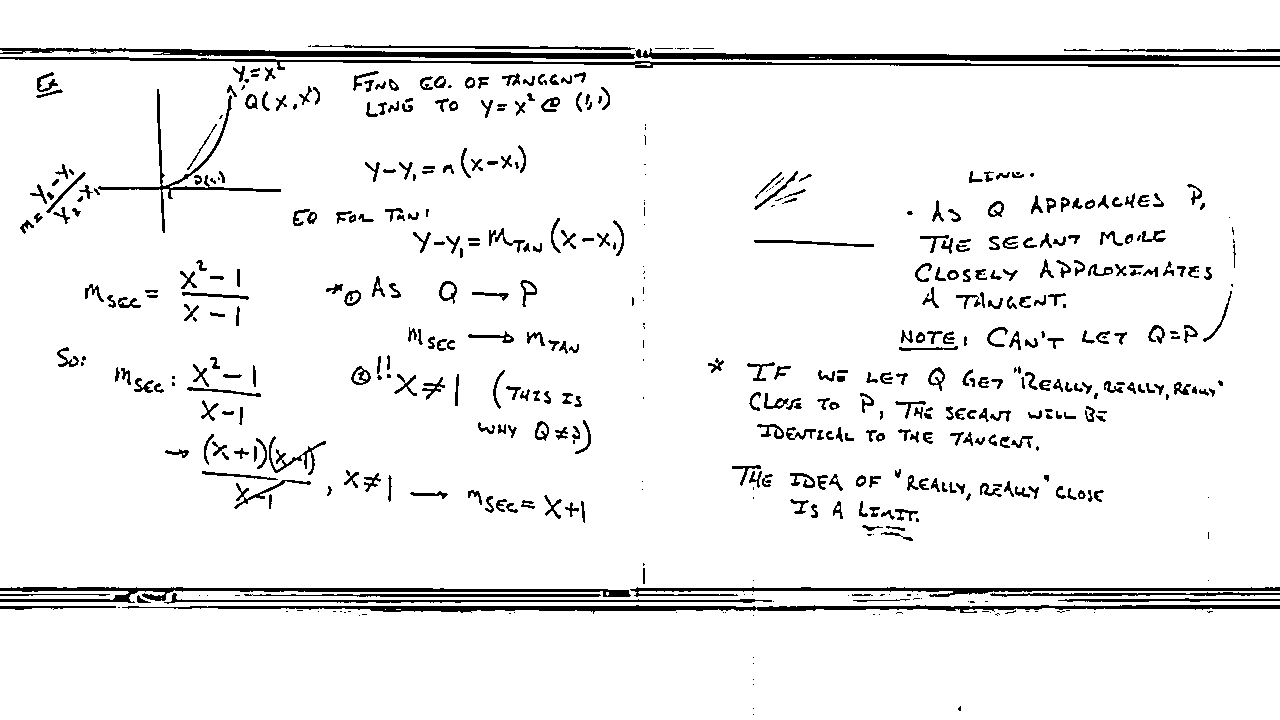 Ex
Y=X²
Q(X,X²)
FIND EQ. OF TANGENT
LINE TO Y=X² @ (1,1)
m = Y₂-Y₁ / X₂-X₁
Y-Y₁=m(X-X₁)
EQ FOR TAN:
Y-Y₁=m_TAN(X-X₁)
m_SEC = X²-1 / X-1
*① AS Q → P
m_SEC → m_TAN
SO:
m_SEC: X²-1 / X-1
②!! X≠1 (THIS IS
WHY Q≠P)
→ (X+1)(X-1) / X-1 , X≠1 → m_SEC = X+1
LINE.
· AS Q APPROACHES P,
THE SECANT MORE
CLOSELY APPROXIMATES
A TANGENT.
NOTE: CAN'T LET Q=P
* IF WE LET Q GET "REALLY, REALLY, REALLY"
CLOSE TO P, THE SECANT WILL BE
IDENTICAL TO THE TANGENT.
THE IDEA OF "REALLY, REALLY" CLOSE
IS A LIMIT.